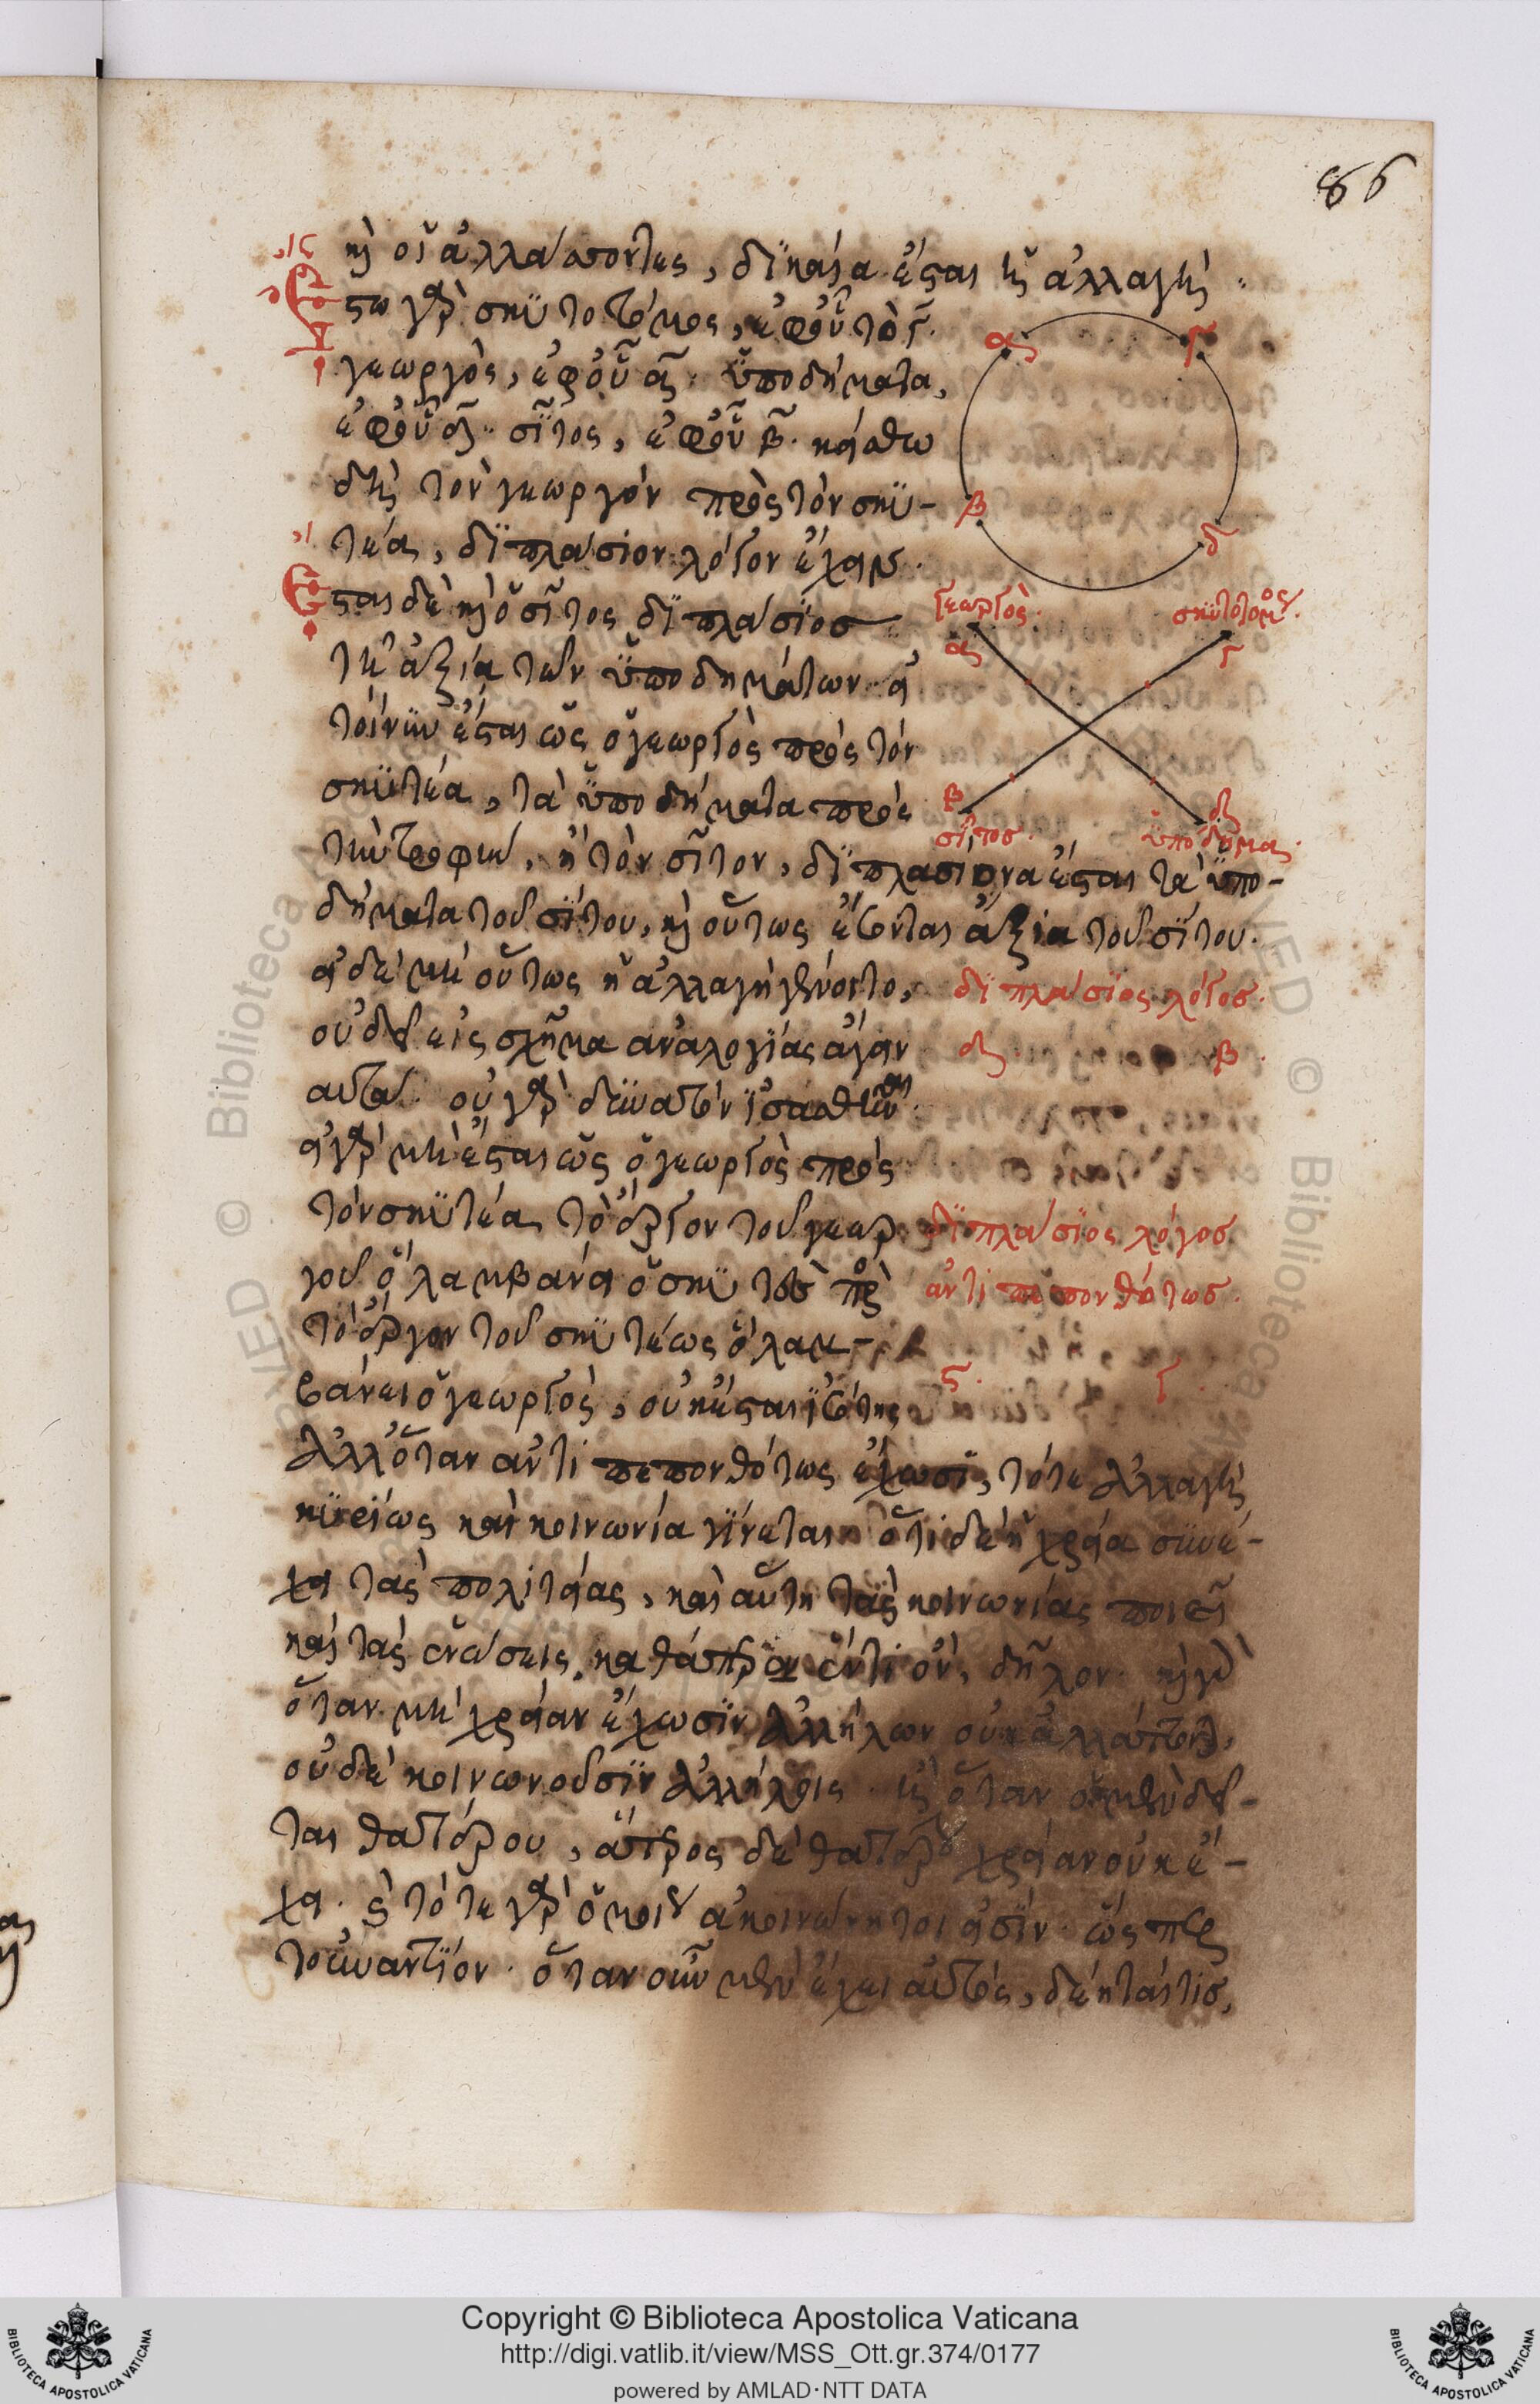 86
καὶ οἱ ἀλλάσσοντες, δϊκαία ἔσται ἡ ἀλλαγή.
ἔστω γὰρ σκϋτοτόμος, ἐφ' οὗ τὸ γ.
γεωργὸς, ἐφ' οὗ α. ὑποδήματα,
ἐφ' οὗ δ. σῖτος, ἐφ' οὗ β. κείσθω
δὴ τὸν γεωργὸν πρὸς τὸν σκϋ-
τέα, δϊπλασίον λόγον ἔχειν.
ἔσται δὲ καὶ ὁ σῖτος δϊπλάσϊος
τῇ ἀξίᾳ τῶν ὑποδημάτων. εἰ
τοίνϋν ἔσται ὡς ὁ γεωργὸς πρὸς τὸν
σκϋτέα, τὰ ὑποδήματα πρὸς
τὴν τροφὴν, ἢ τὸν σῖτον, δϊπλασίονα ἔσται τὰ ὑπο-
δήματα τοῦ σίτου, καὶ οὕτως ἔσονται ἄξια τοῦ σίτου.
εἰ δὲ μὴ οὕτως ἡ ἀλλαγὴ γένοιτο,
οὐ δεῖ εἰς σχῆμα αναλογϊας ἄγειν
αυτά. οὐ γὰρ δϋνατὸν ϊσασθῆναι.
εἰ γὰρ μὴ ἔσται ὡς ὁ γεωργὸς πρὸς
τὸν σκϋτέα, τὸ ἔργον τοῦ γεωρ
γοῦ ὃ λαμβάνει ὁ σκϋτεὺς πρὸς
τὸ ἔργον τοῦ σκϋτέως ὃ λαμ-
βάνει ὁ γεωργὸς, οὐκ ἔσται ϊσότης
ἀλλ' ὅταν ἀντιπεπονθότως ἔχωσϊ, τότε ἀλλαγὴ
κϋρϊως καὶ κοινωνία γϊνεται. ὅτι δὲ ἡ χρεία σϋνέ-
χει τὰς πολιτείας, καὶ αὕτη τὰς κοινωνίας ποιεῖ
καὶ τὰς ἑνώσεις, καθάπερ ἕν τι ὂν, δῆλον. καὶ γὰρ
ὅταν μὴ χρείαν ἔχωσϊν ἀλλήλων οὐκ ἀλλάττουσιν,
οὐδὲ κοινωνοῦσϊν ἀλλήλοις. καὶ ὅταν ὁ μὲν δεῖ-
ται θατέρου, ἅτερος δὲ θατέρου χρείαν οὐκ ἔ-
χει. καὶ τότε γὰρ ὁμοίως ἀκοινώνητοι εἰσϊν. ὥσπερ
τοὐναντϊον. ὅταν οὖν μὲν ἔχει αὐτὸς, δέηταί τις,
α γ
β δ
γεωργὸς. σκϋτοτόμος.
α γ
β δ
σῖτος. ὑποδήματα.
δϊπλάσϊος λόγος.
δ β.
δϊπλάσϊος λόγος.
ἀντιπεπονθότως.
ϛ. γ.
Copyright © Biblioteca Apostolica Vaticana
http://digi.vatlib.it/view/MSS_Ott.gr.374/0177
powered by AMLAD·NTT DATA
BIBLIOTECA APOSTOLICA VATICANA
BIBLIOTECA APOSTOLICA VATICANA